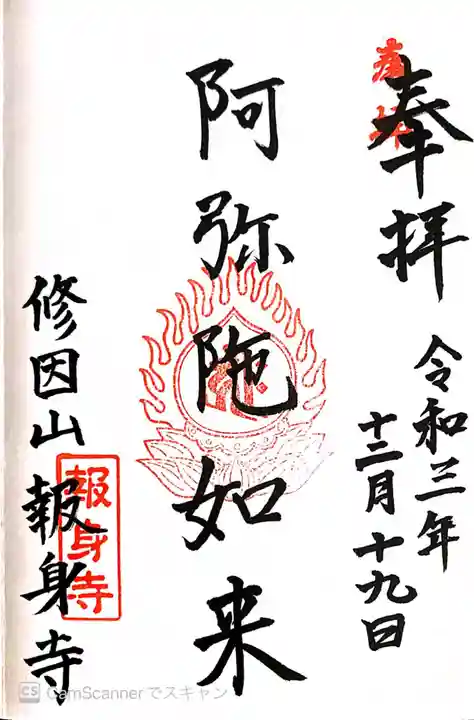 奉拝
奉拝
令和三年
十二月十九日
阿弥陀如来
修因山報身寺
報身寺
CS CamScannerでスキャン